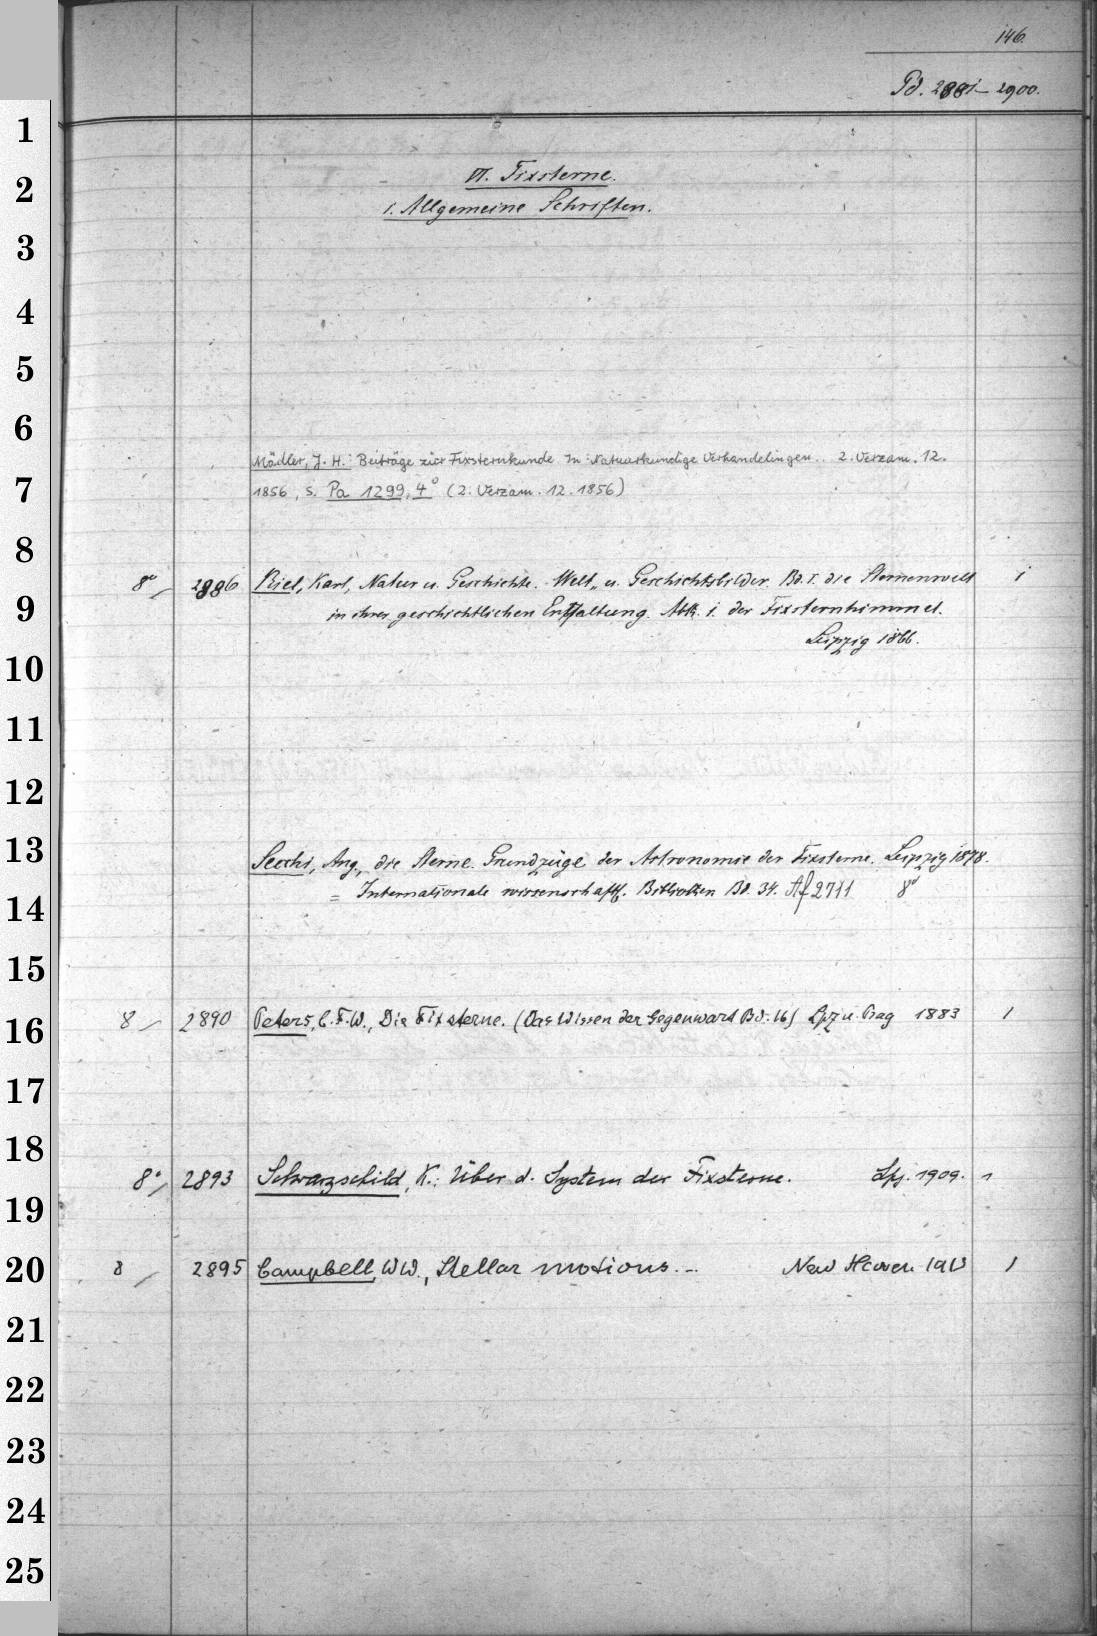 146.
Pd. 2881 – 2900.
VI. Fixsterne.
1. Allgemeine Schriften.
Mädler, J. H.: Beiträge zur Fixsternkunde. In: Natuurkundige Verhandelingen.. 2. Verzam. 12.
1856, s. Pa 1299, 4° (2. Verzam. 12. 1856)
8° 2886 Riel, Karl, Natur u. Geschichte. Welt- u. Geschichtsbilder. Bd. I. die Sternenwelt 1
in ihrer geschichtlichen Entfaltung. Abth. 1. der Fixsternhimmel.
Leipzig 1866.
Secchi, Ang., die Sterne. Grundzüge der Astronomie der Fixsterne. Leipzig 1878.
= Internationale wissenschaftl. Bibliothek Bd. 34. Af 2711 8°
8 2890 Peters, C. F. W., Die Fixsterne. (Das Wissen der Gegenwart Bd. 16) Lpz u. Prag 1883 1
8° 2893 Schwarzschild, K.: Über d. System der Fixsterne. Lpz. 1909. 1
8 2895 Campbell, W W., Stellar motions. - New Haven 1913 1
1
2
3
4
5
6
7
8
9
10
11
12
13
14
15
16
17
18
19
20
21
22
23
24
25